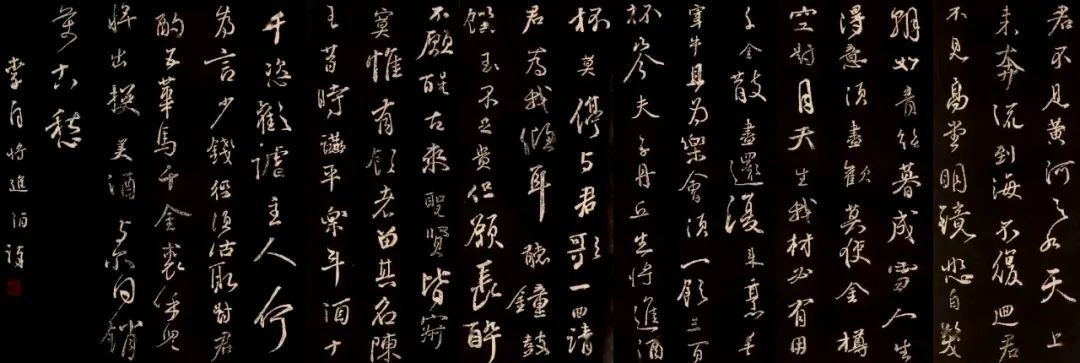 君不見黃河之水天上
来奔流到海不復迴君
不見高堂明鏡悲白髮
朝如青絲暮成雪人生
得意須盡歡莫使金樽
空對月天生我材必有用
千金散盡還復来烹羊
宰牛且為樂會須一飲三百
杯岑夫子丹丘生將進酒
杯莫停與君歌一曲請
君為我傾耳聽鐘鼓
饌玉不足貴但願長醉
不願醒古來聖賢皆寂
寞惟有飲者留其名陳
王昔時讌平樂斗酒十
千恣歡謔主人何
為言少錢徑須沽取對君
酌五華馬千金裘呼兒
將出換美酒與爾同銷
萬古愁
李白將進酒詩